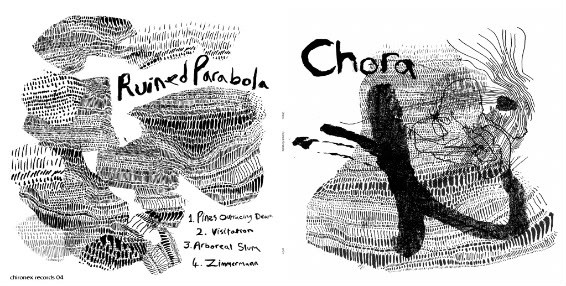 Ruined Parabola
1. Pines Outracing Dawn
2. Visitation
3. Arboreal Slum
4. Zimmermann
chironex records 04
Chora